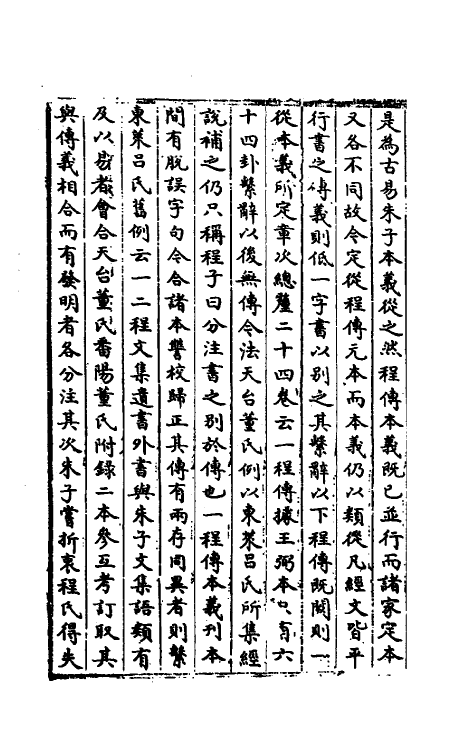 是為古易朱子本義從之然程傳本義既已並行而諸家定本
又各不同故今定從程傳元本而本義仍以類從凡經文皆平
行書之傳義則低一字書以別之其繫辭以下程傳既闕則一
從本義所定章次總釐二十四卷云一程傳據王弼本只有六
十四卦繫辭以後無傳今法天台董氏例以東萊呂氏所集經
說補之仍只稱程子曰分注書之別於傳也一程傳本義刊本
間有脫誤字句今合諸本讐校歸正其傳有兩存同異者則繫
東萊呂氏舊例云一二程文集遺書外書與朱子文集語類有
及以易者會合天台董氏畨陽董氏附錄二本參互考訂取其
與傳義相合而有發明者各分注其次朱子嘗折衷程氏得失